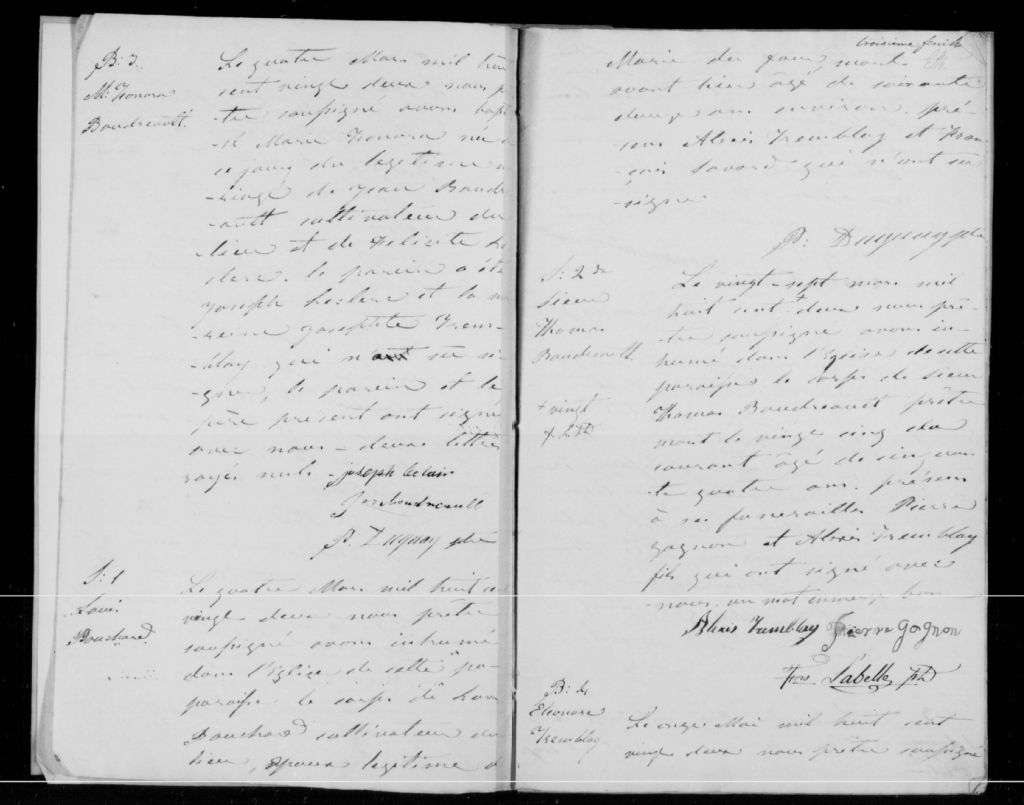 B: 3
M. Honora
Boudreault.
Le quatre Mars mil huit
cent vingt deux nous p
-tre soussigné avons bapt
-sé Marie Honora née
ce jour du légitime m
-riage de Jean Boudr
-ault cultivateur du
lieu et de Felicité Le
clerc. le parein a été
Joseph Leclerc et la ma
-reine Josephte Trem-
-blay qui n'ont su si-
-gner, le parein et le
père présent ont signé
avec nous - deux lettres
rayés nuls -
Joseph leclair
Jos boudreault
P. Duguay ptre
S: 1
Louis
Bouchard
Le quatre Mars mil huit cent
vingt-deux nous prêtre
soussigné avons inhumé
dans l'Eglise de cette pa-
paroisse le corps de Louis
Bouchard cultivateur du
lieu, époux legitime d
troisieme feuille
Marie du four, mort
avant hier âgé de soixante
douze ans environ. pré-
sens Alexis Tremblay et Fran
-çois Savard qui n'ont su
-signer
P: Duguay ptre
S: 2de
Sieur
Thomas
Boudreault
+ vingt
Le vingt-sept mars mil
huit cent + deux nous prê-
-tre soussigné avons in-
humé dans l'Eglise de cette
paroisse le corps de Sieur
Thomas Boudreault prêtre
mort le vingt cinq du
courant âgé de cinquan
-te quatre ans. présens
à ses funerailles Pierre
gagnon et Alexis Tremblay
fils qui ont signé avec
nous. un mot en marge bon
Alexis Tremblay Pierre Gagnon
Frs Labelle Ptr
B: 4
Eleonore
Tremblay
Le onze Mai mil huit cent
vingt deux nous prêtre soussigné